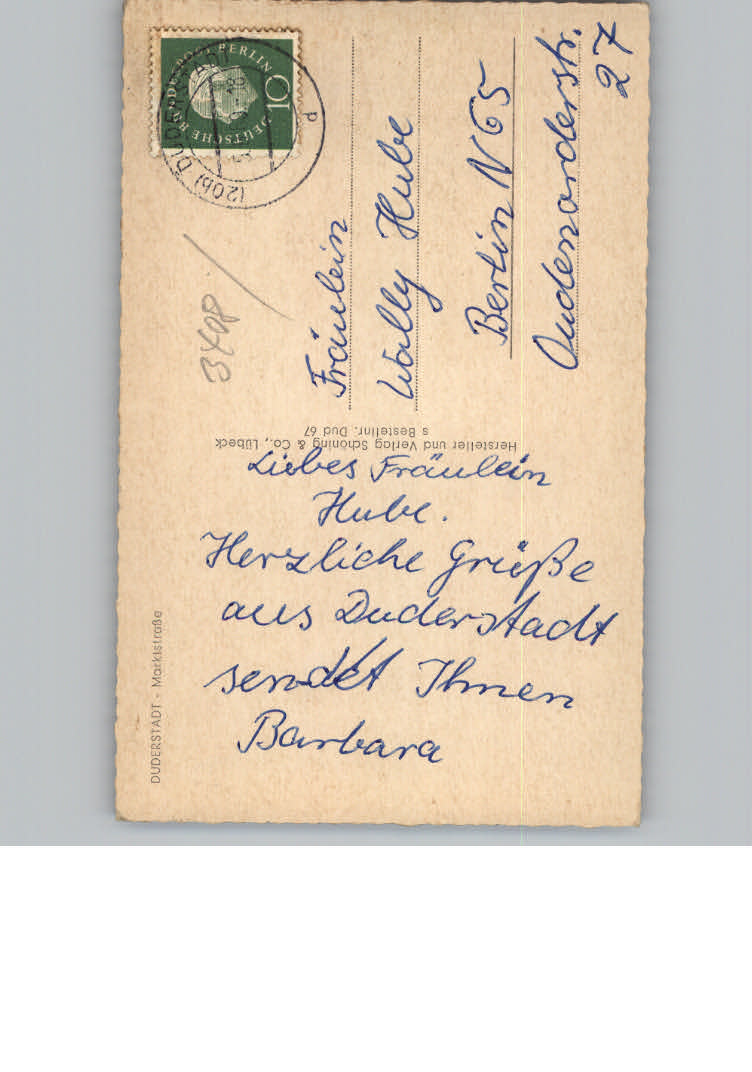 DEUTSCHE BUNDESPOST BERLIN
10
(20b) DUDERSTADT
p
3408
Fräulein
Wally Hube
Berlin N 65
Oudenarderstr.
27
Hersteller und Verlag Schöning & Co., Lübeck
s Bestellnr. Dud 67
Liebes Fräulein
Hube.
Herzliche Grüße
aus Duderstadt
sendet Ihnen
Barbara
DUDERSTADT - Marktstraße